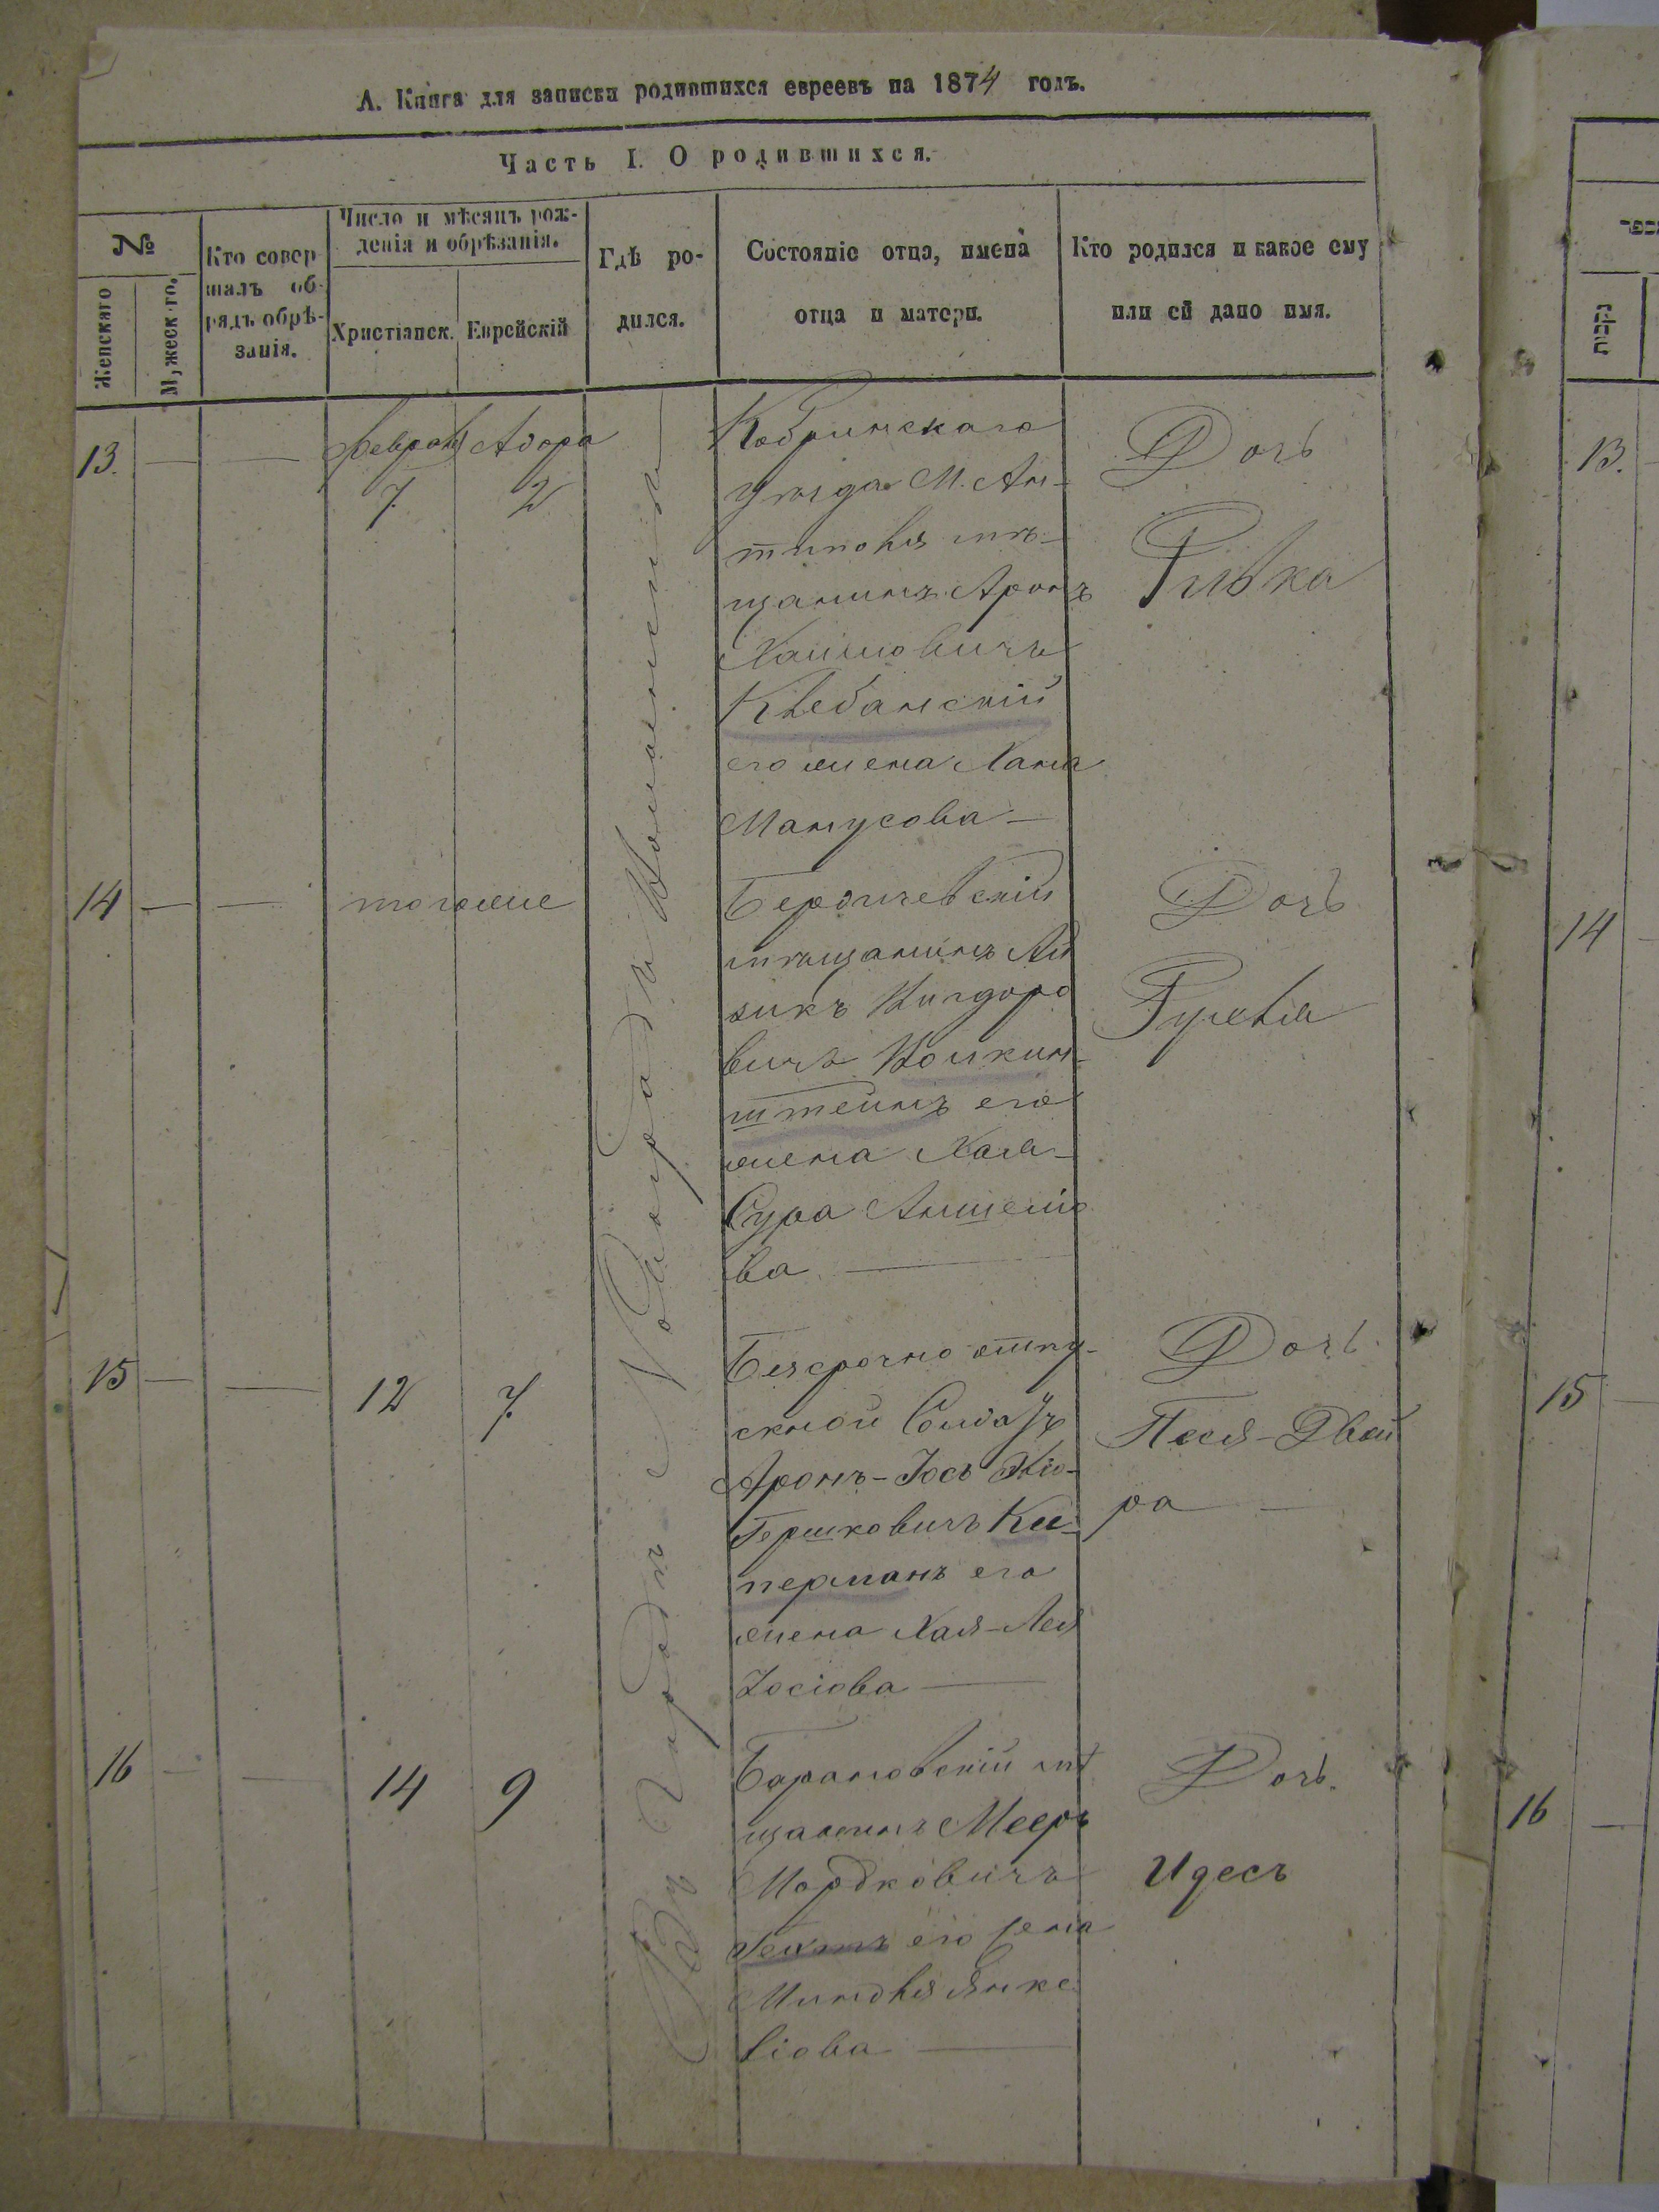 А. Книга для записки родившихся евреевъ на 1874 годъ.
Часть I. О родившихся.
№
Женскаго
Мужеск-го.
Кто совер-
шалъ об-
рядъ обрѣ-
занія.
Число и мѣсяцъ рож-
денія и обрѣзанія.
Христіанск.
Еврейскій
Гдѣ ро-
дился.
Состояніе отца, имена
отца и матери.
Кто родился и какое ему
или ей дано имя.
13.
Февраля
7.
Адора
2
Кобринскаго
уѣзда М. Ан-
мѣ-
щанинъ Аронъ
Хаимовичъ
Клебанскій
его жена Хана
Манусова
Дочь
Ривка
14
тогоже
Бердичевскій
мѣщанинъ Ай
зикъ
вичъ
штейнъ его
жена Хая-
Сура Аншелio
ва
Дочь
15
12
7.
Безсрочно отпу-
скной Солдатъ
Аронъ-Іосъ
Гершковичъ Ки-
перманъ его
жена Хая-Лея
Іосіова
Дочь.
Песя-Двей
ра
16
14
9
Барановскій мѣ
щанинъ Мееръ
Мордковичъ
его жена
Миндля Янке
ліова
Дочь.
Идесъ
Въ городѣ Новоградѣ Волынскомъ
13.
14
15
16